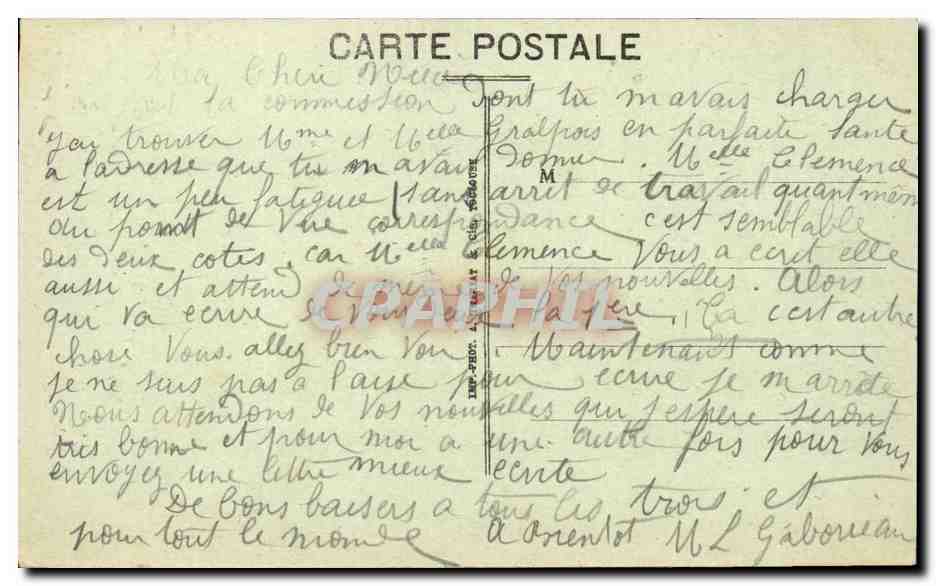 CARTE POSTALE
Ma Cheri
la commission dont tu mavais charger
jai trouver Mme et Melle Gralpois en parfaite Sante
a ladresse que tu mavais donner. Melle Clemence
est un peu fatiguee sans arret de travail quantmem
du point de Vue correspondance cest semblable
des deux cotes, car Melle Clemence Vous a ecrit elle
aussi et attend de même de Vos nouvelles. Alors
qui va ecrire de Vous la cest autre
chose Vous allez bien Maintenant comme
je ne suis pas a laise pour ecrire je marrete
Nous attendons de Vos nouvelles qui jespere seront
tres bonne et pour moi a une autre fois pour Vous
envoyez une lettre mieux ecrite
De bons baisers a tous les trois et
pour tout le monde a Bientot M L Gaborieau
M
IMP.-PHOT. & Cie, TOULOUSE
CPAPHIL